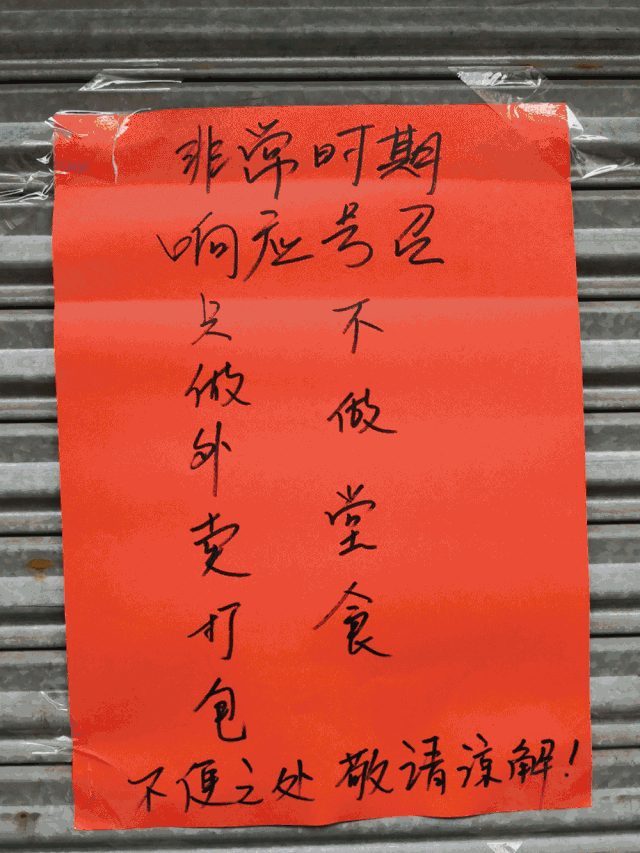 非常时期
响应号召
不做堂食
只做外卖打包
不便之处 敬请谅解!